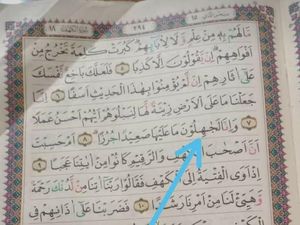 ١٨ ٢٩٤ ١٥
مَّا لَهُم بِهِ مِنْ عِلْمٍ وَّلَا لِاٰبَآئِهِمْ كَبُرَتْ كَلِمَةً تَخْرُجُ مِنْ
اَفْوَاهِهِمْ اِنْ يَّقُوْلُوْنَ اِلَّا كَذِبًا ٥ فَلَعَلَّكَ بَاخِعٌ نَّفْسَكَ
عَلٰٓى اٰثَارِهِمْ اِنْ لَّمْ يُؤْمِنُوْا بِهٰذَا الْحَدِيْثِ اَسَفًا ٦ اِنَّا
جَعَلْنَا مَا عَلَى الْاَرْضِ زِيْنَةً لَّهَا لِنَبْلُوَهُمْ اَيُّهُمْ اَحْسَنُ عَمَلًا
٧ وَاِنَّا لَجٰهِلُوْنَ مَا عَلَيْهَا صَعِيْدًا جُرُزًا ٨ اَمْ حَسِبْتَ
اَنَّ اَصْحٰبَ الْكَهْفِ وَالرَّقِيْمِ كَانُوْا مِنْ اٰيٰتِنَا عَجَبًا ٩
اِذْ اَوَى الْفِتْيَةُ اِلَى الْكَهْفِ فَقَالُوْا رَبَّنَآ اٰتِنَا مِنْ لَّدُنْكَ رَحْمَةً
وَّهَيِّئْ لَنَا مِنْ اَمْرِنَا رَشَدًا ١٠ فَضَرَبْنَا عَلٰٓى اٰذَانِهِمْ فِى